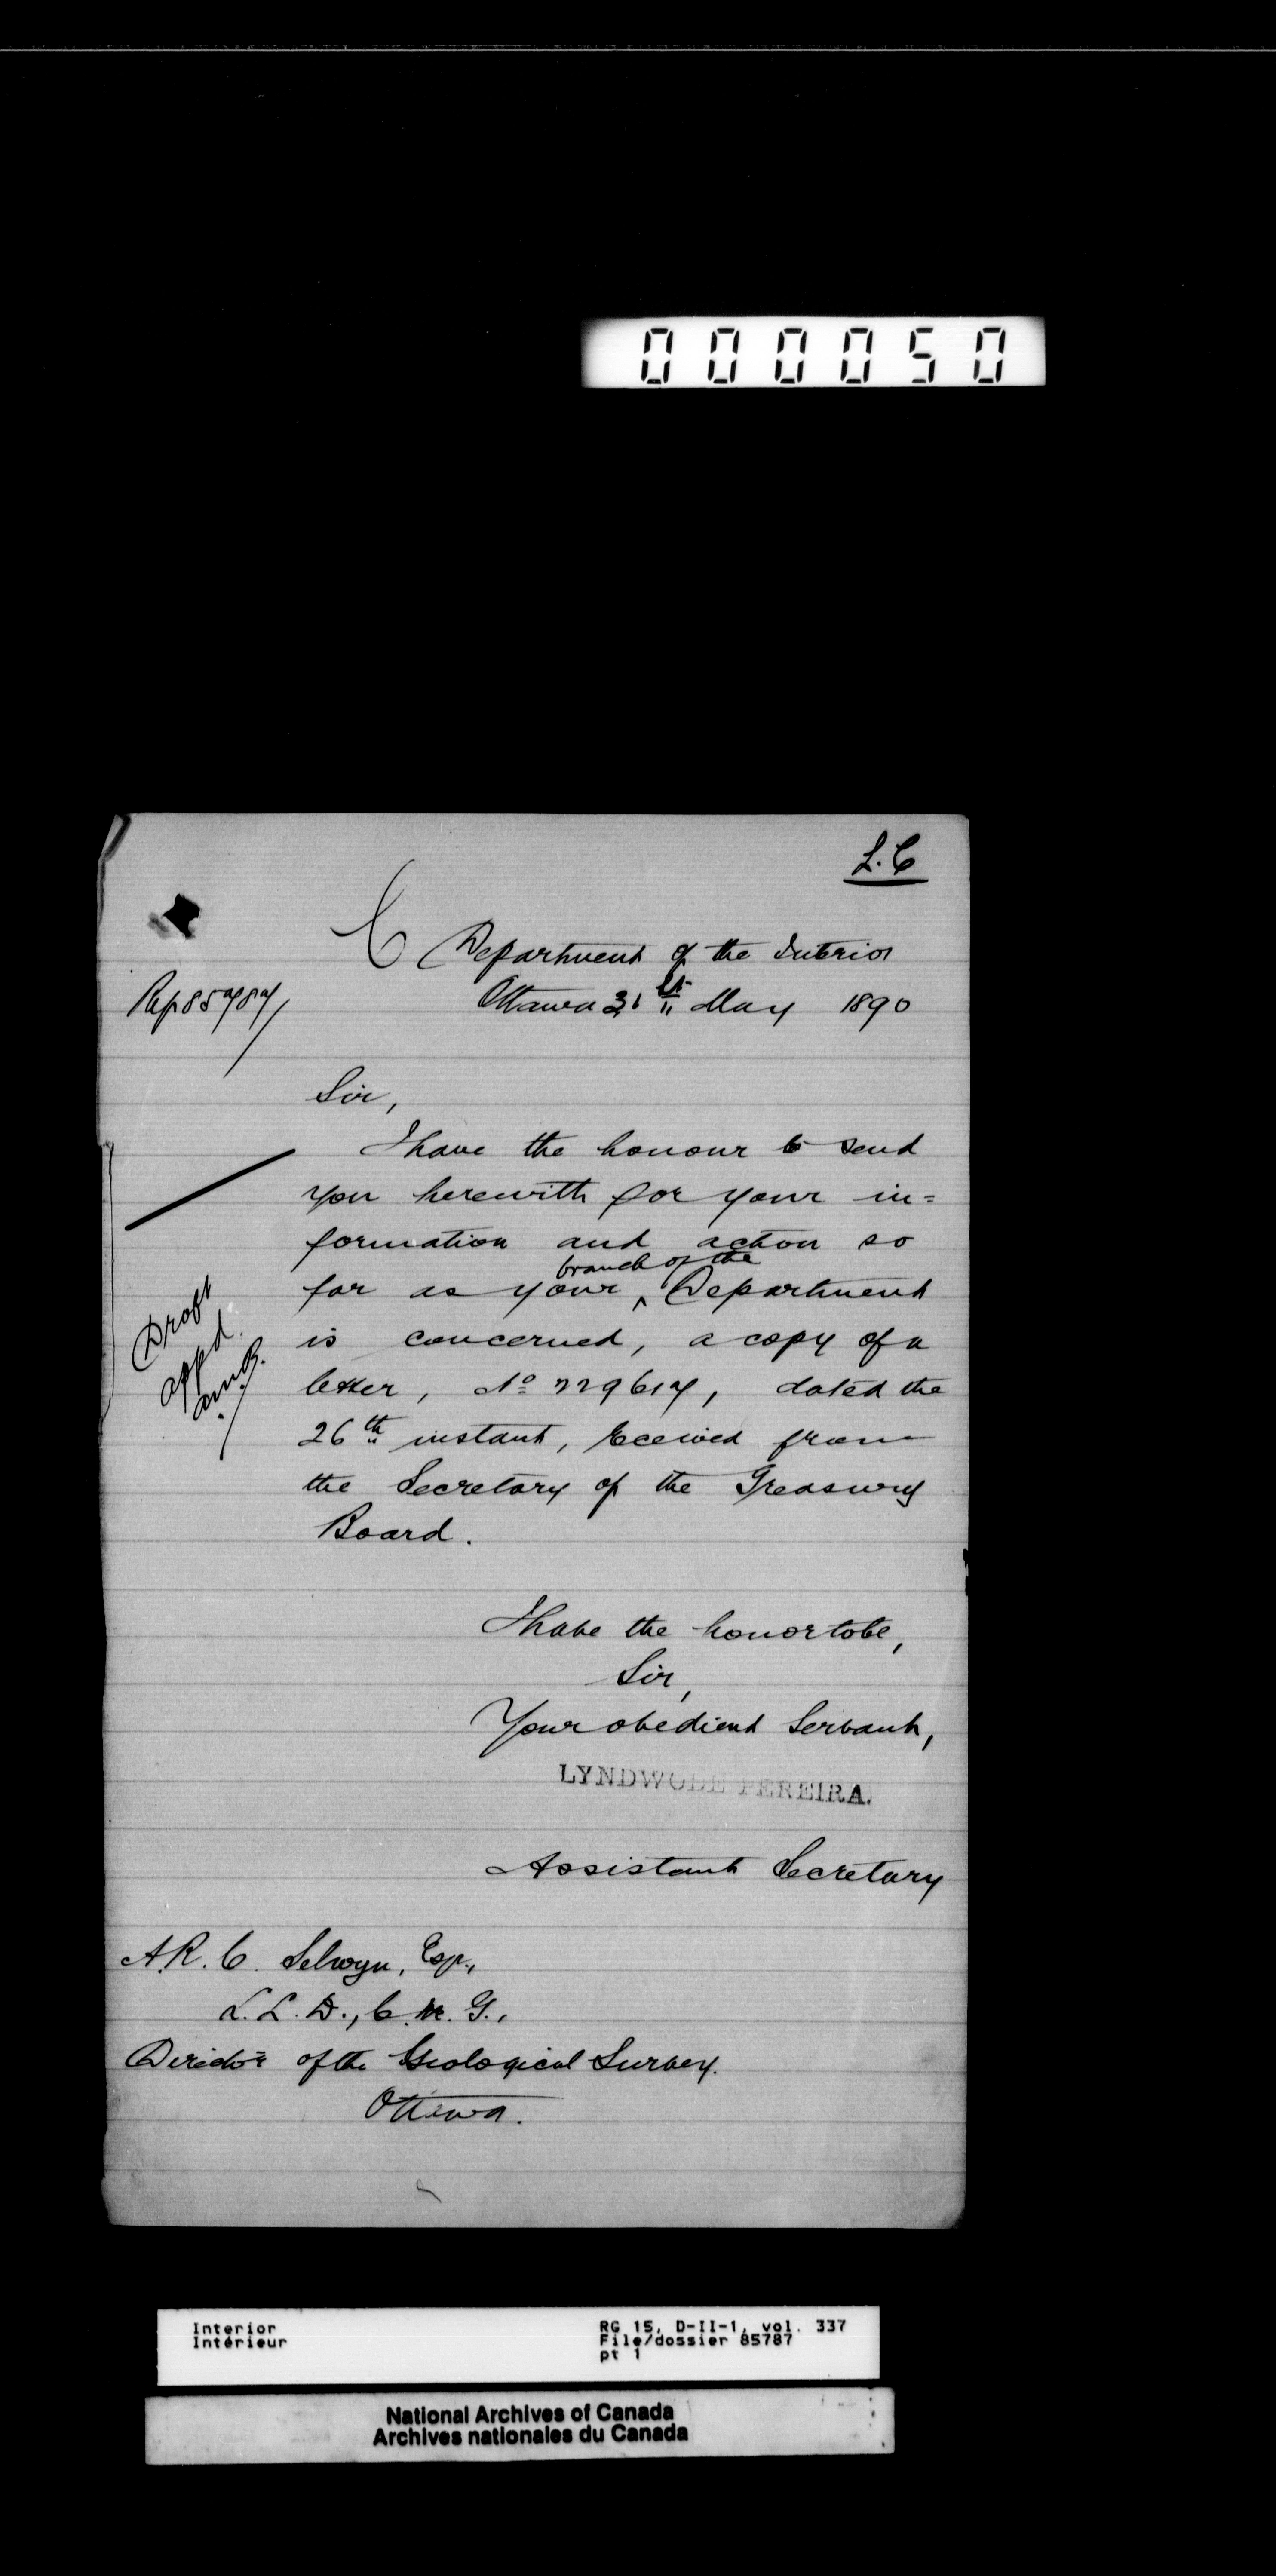 000050
L.C
Department of the Interior
Ref 85787
Ottawa 31st May 1890
Sir,
I have the honour to send
you herewith for your in=
formation and action so
branch of the
far as your ^ Department
is concerned, a copy of a
letter, No 229617, dated the
26th instant, received from
the Secretary of the Treasury
Board.
Draft
appd.
I have the honor to be,
Sir,
Your obedient Servant,
LYNDWODE PEREIRA.
Assistant Secretary
A.R.C. Selwyn, Esq.,
L.L.D., C.M.G.,
Director of the Geological Survey.
Ottawa.
Interior
Intérieur
RG 15, D-II-1, vol. 337
File/dossier 85787
pt 1
National Archives of Canada
Archives nationales du Canada